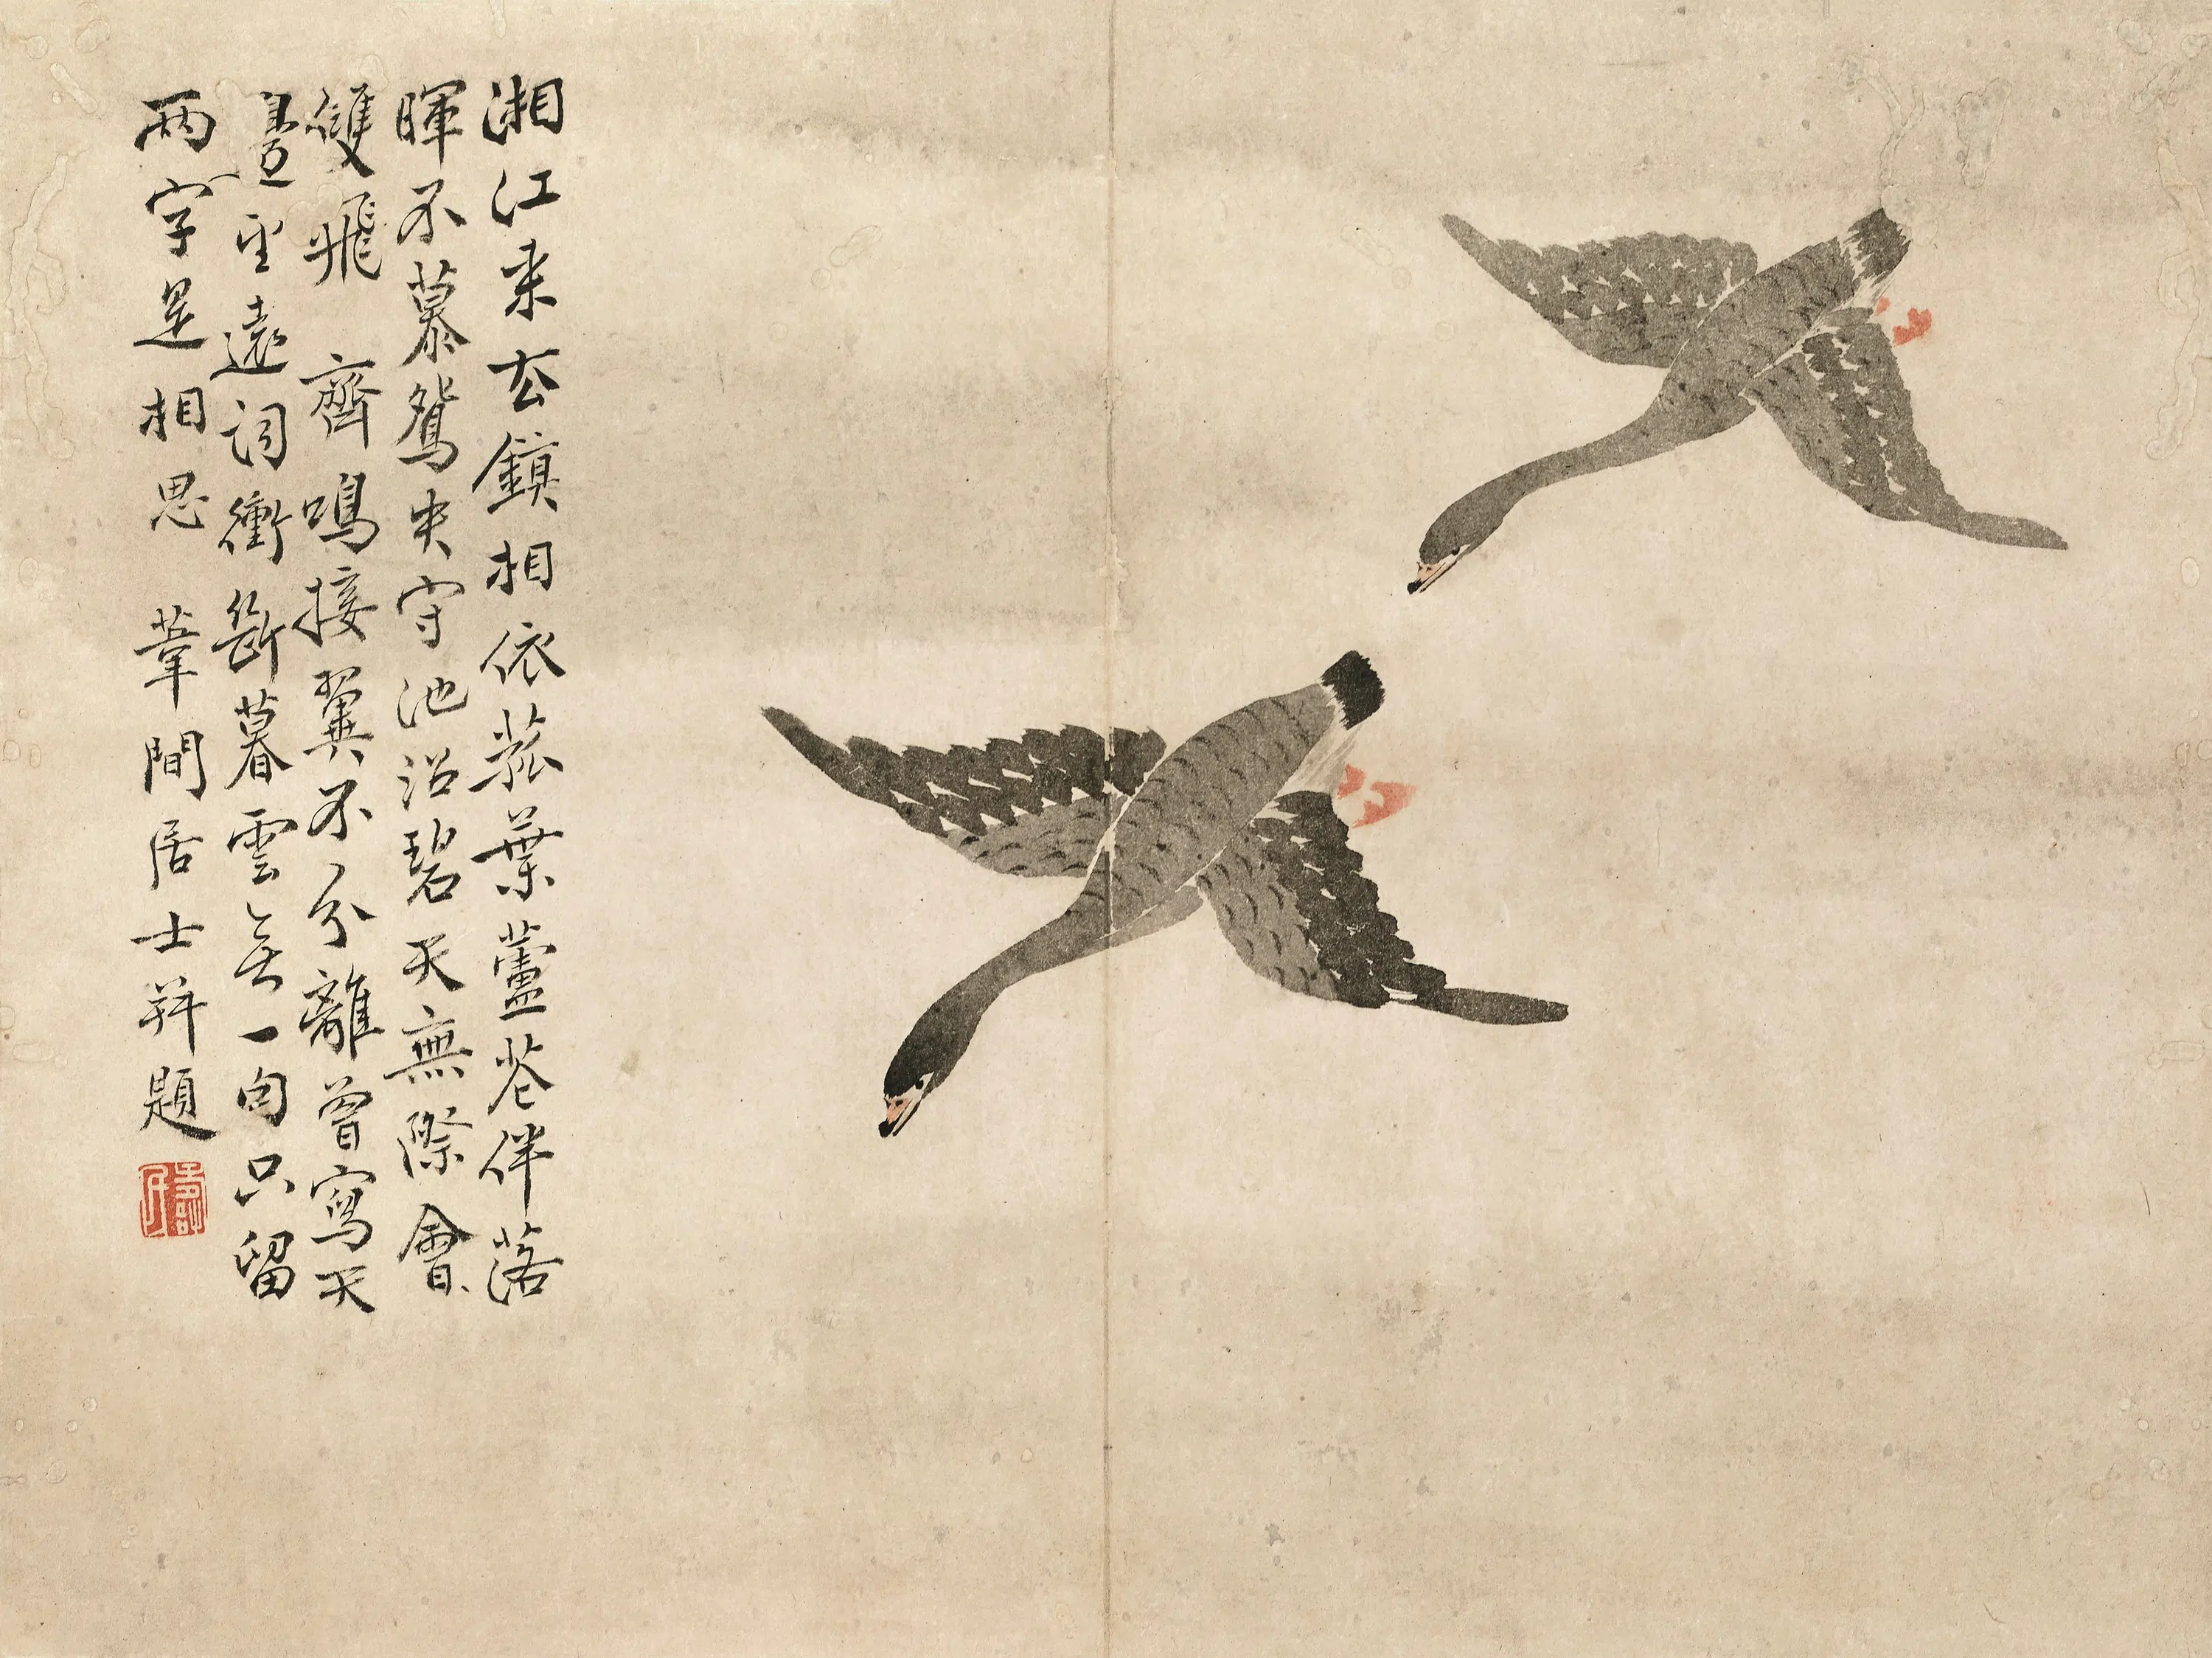 湘江來去鎮相依菰葉蘆花伴落
暉不慕鴛央守池沼碧天無際會
雙飛 齊鳴接翼不分離曾寫天
臺望遠詞衝斷暮雲無一句只留
兩字是相思 葦間居士并題